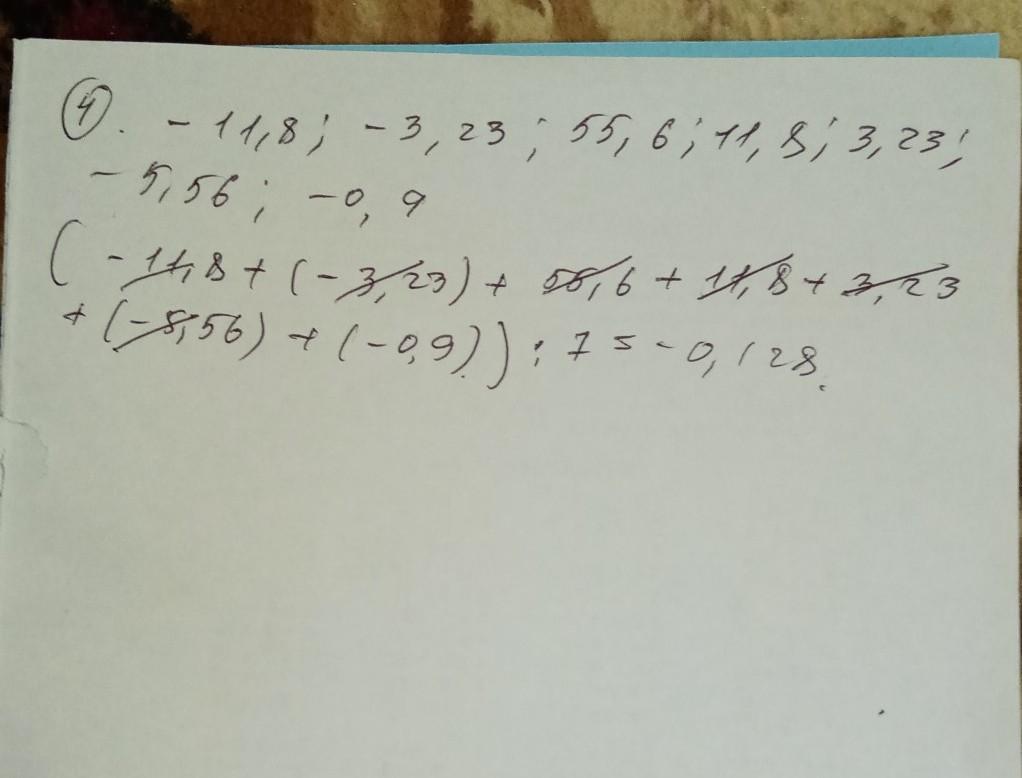 4. -11,8; -3,23; 55,6; 11,8; 3,23;
-5,56; -0,9
(-11,8 + (-3,23) + 55,6 + 11,8 + 3,23
+ (-5,56) + (-0,9)) : 7 = -0,128.